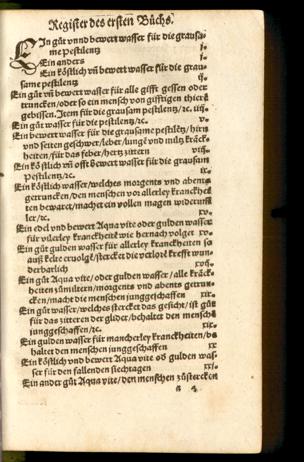 Register des ersten Bůchs.
EIn gůt vnnd bewert wasser für die grausa-
me pestilentz j.
Ein anders j.
Ein köstlich vñ bewert wasser für die grau-
same pestilentz ij.
Ein gůt vñ bewert wasser für alle gifft gessen oder
truncken/oder so ein mensch von gifftigen thierē
gebissen. Item für die grausam pestilentz/ꝛc. iiij.
Ein gůt wasser für die pestilentz/ꝛc. v.
Ein bewert wasser für die grausame pestilētz/hirn
vnd seiten geschwer/leber/lungē vnd miltz kräck-
heiten/für das feber/hertz zittern
Ein köstlich vñ offt bewert wasser für die grausam
pestilentz/ꝛc. ix.
Ein köstlich wasser/welches morgents vnd abents
getruncken/den menschen vor allerley kranckheit
ten bewaret/macht ein vollen magen widerumb
ler/ꝛc. xv.
Ein edel vnd bewert Aqua vite oder gulden wasser
für vilerley kranckheitē wie hernach volget xv.
Ein gůt gulden wasser für allerley kranckheiten so
auß kelte ervolgē/stercket die verlorē krefft wun-
derbarlich
Ein gůt Aqua vite/oder gulden wasser/alle kräck-
heiten zůmiltern/morgents vnd abents getrun-
cken/macht die menschen junggeschaffen xix.
Ein gůt wasser/welches stercket das gesicht/ist gůt
für das zitteren der glider/behaltet den menschē
junggeschaffen/ꝛc. xix.
Ein gulden wasser für mancherley kranckheiten/be
haltet den menschen junggeschaffen xx
Ein köstlich vnd bewert Aqua vite od gulden was-
ser für den fallenden siechtagen xxj.
Ein ander gůt Aqua vite/den menschen zůstercken
a 4